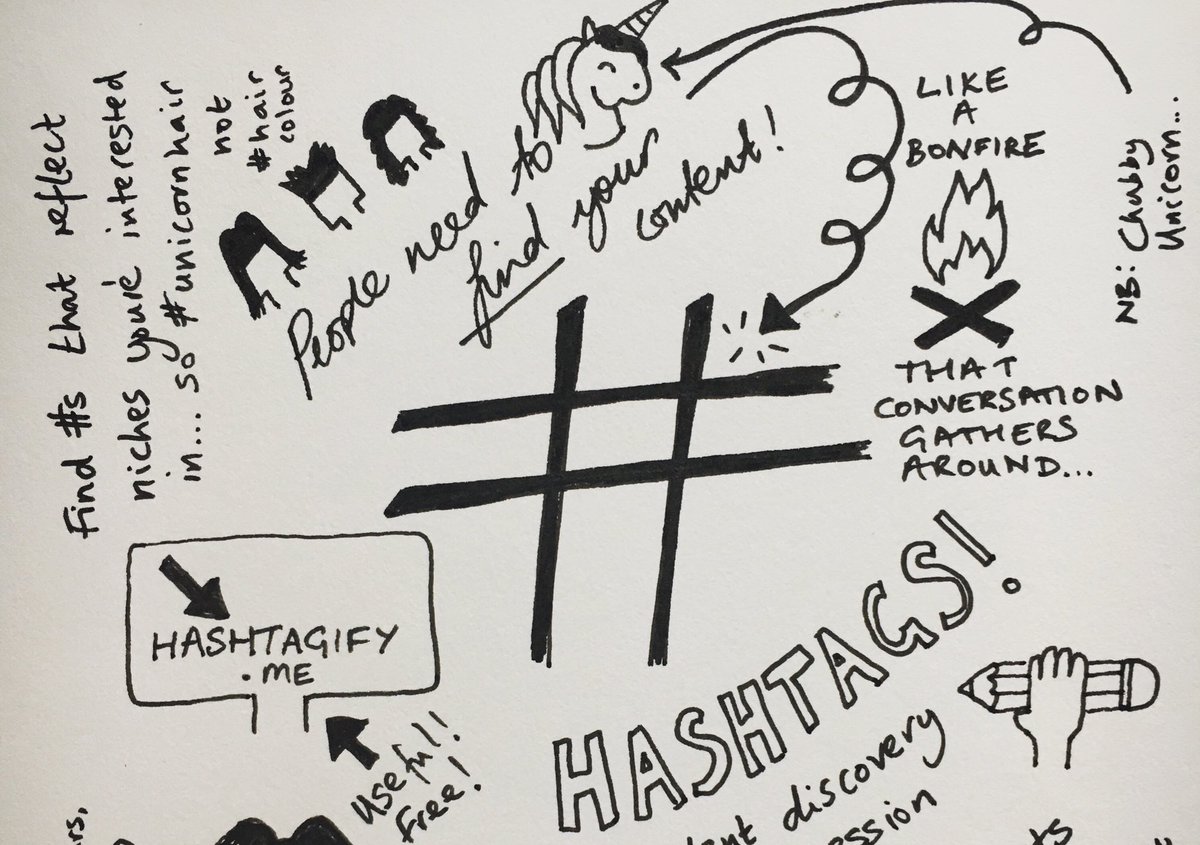 Find #s that reflect
niches you're interested
in.... so #unicornhair
not
#hair
colour
People need to
find your
content!
LIKE
A
BONFIRE
THAT
CONVERSATION
GATHERS
AROUND...
NB: Chubby
Unicorn...
#
HASHTAGIFY
.ME
Useful!
Free!
HASHTAGS!
discovery